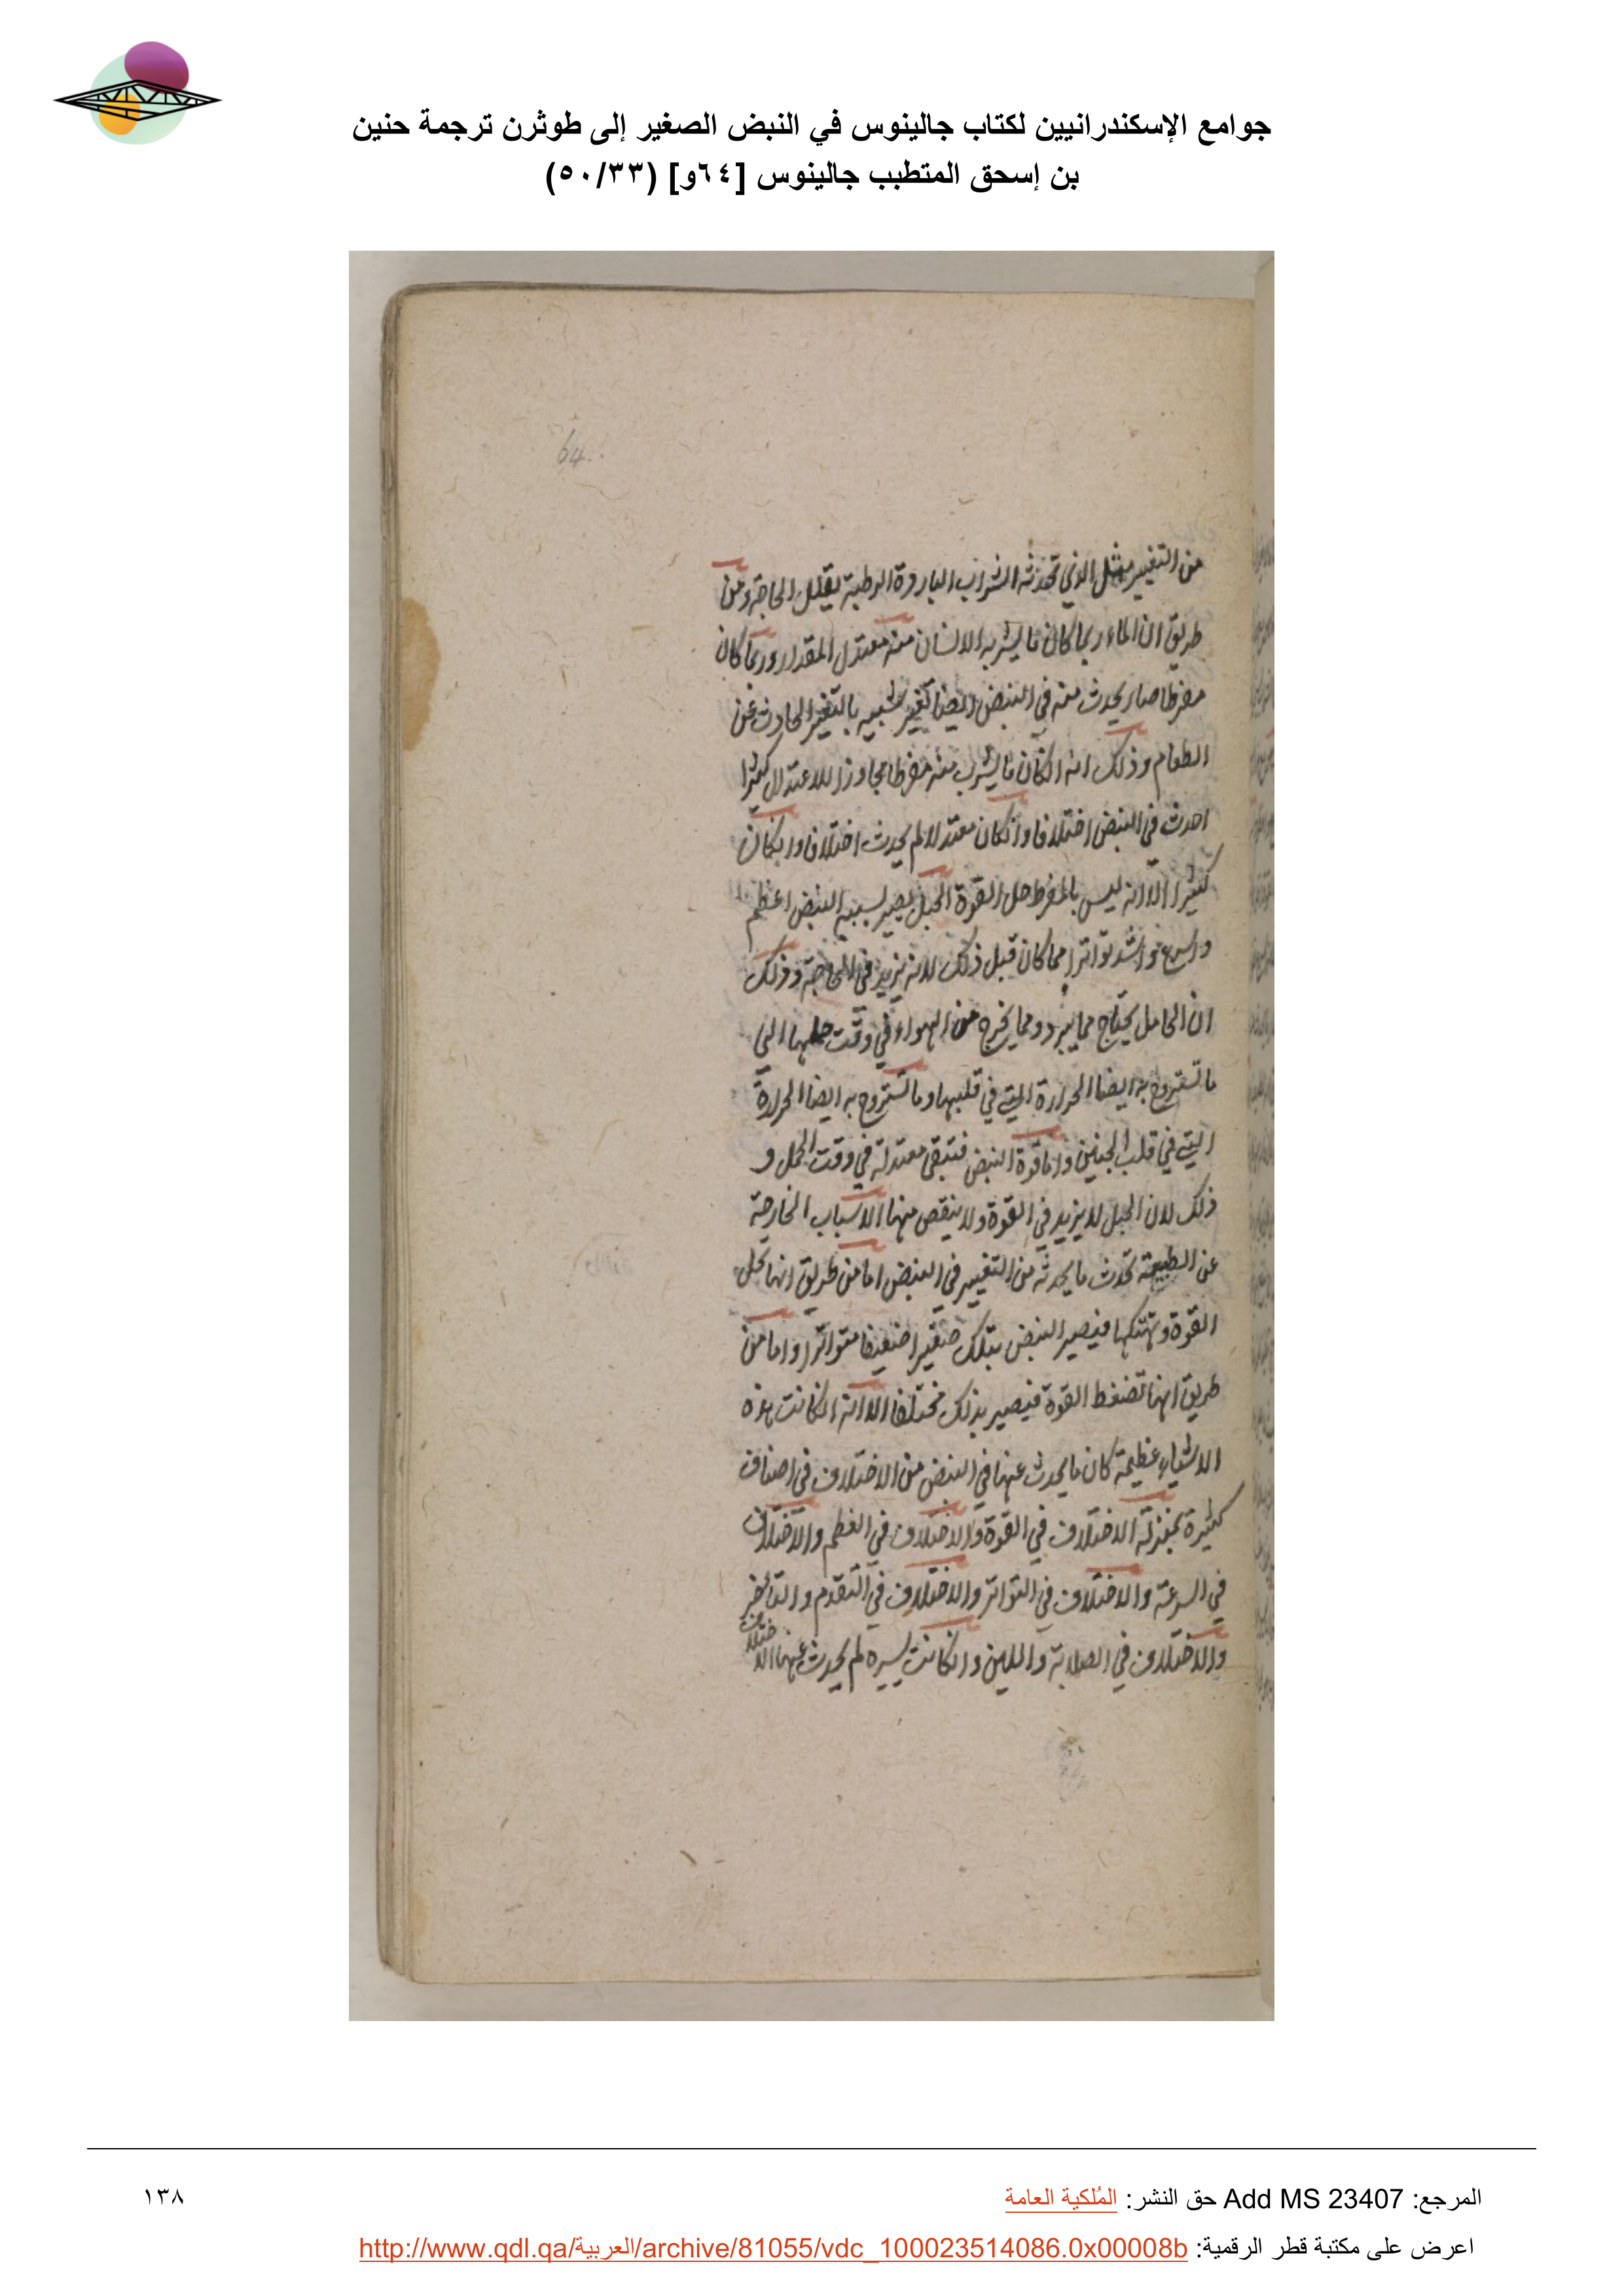 جوامع الإسكندرانيين لكتاب جالينوس في النبض الصغير إلى طوثرن ترجمة حنين
بن إسحق المتطبب جالينوس [٦٤و] (٥٠/٣٣)
64
من التغيير مثل الذي تحدثه الشراب الباردة الرطبة يقلل الحاجة ومن
طريق ان الماء ربما كان ما يشربه الانسان منه معتدل المقدار وربما كان
مفرطا صار يحدث منه في النبض ايضا تغير شبيه بالتغير الحادث عن
الطعام وذلك انه انكان ما يشرب منه مفرطا مجاوزا للاعتدال كثيرا
احدث في النبض اختلافا وانكان معتدلا لم يحدث اختلافا وانكان
كثيرا الا انه ليس بالمفرط حل القوة الحبل يصير بسببه النبض اعظم
واسرع واشد تواترا مما كان قبل ذلك لانه يزيد في الحاجة وذلك
ان الحامل يحتاج مما يبرد ومما يخرج من الهواء في وقت حملها الى
ما تستروح به ايضا الحرارة التي في قلبها وما تستروح به ايضا الحرارة
التي في قلب الجنين واما قوة النبض فتبقى معتدلة في وقت الحمل و
ذلك لان الحبل لا يزيد في القوة ولا ينقص منها الاسباب الخارجة
عن الطبيعة تحدث ما يحدثه من التغيير في النبض اما من طريق انها تحل
القوة وتهتكها فيصير النبض بتلك صغيرا ضعيفا متواترا واما من
طريق انها تضغط القوة فيصير بذلك مختلفا الا انه انكانت هذه
الاشياء عظيمة كان ما يحدث عنها في النبض من الاختلاف في اصناف
كثيرة بمنزلة الاختلاف في القوة والاختلاف في العظم والاختلاف
في السرعة والاختلاف في التواتر والاختلاف في التقدم والتاخر
والاختلاف في الصلابة واللين وانكانت يسيره لم يحدث عنها الاختلاف
المرجع: Add MS 23407 حق النشر: المُلكية العامة
١٣٨
اعرض على مكتبة قطر الرقمية: http://www.qdl.qa/العربية/archive/81055/vdc_100023514086.0x00008b